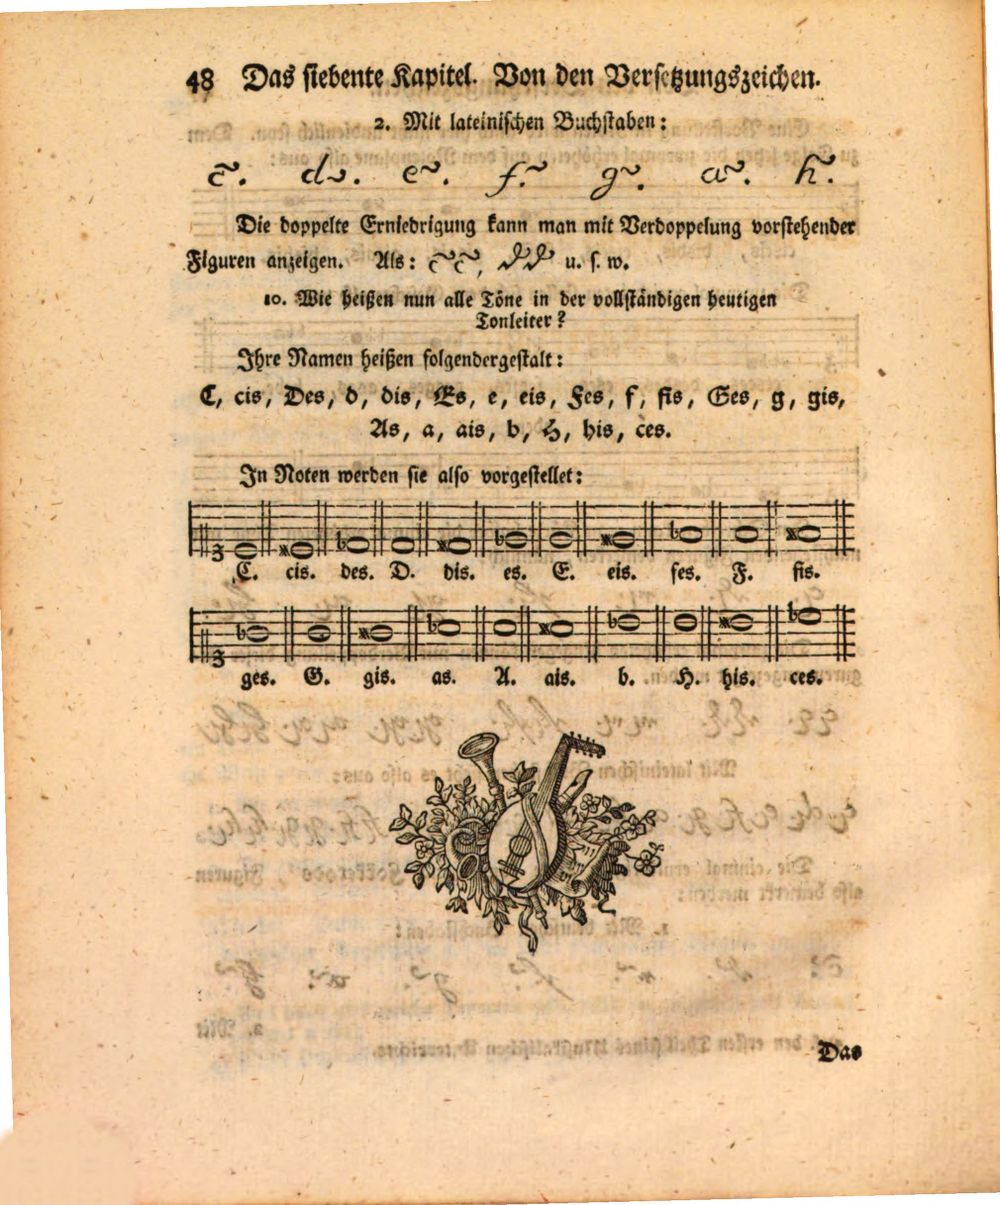 48 Das siebente Kapitel. Von den Versetzungszeichen.
2. Mit lateinischen Buchstaben:
c̃. d~. e~. f.~ g~. a~. h̃.
Die doppelte Erniedrigung kann man mit Verdoppelung vorstehender
Figuren anzeigen. Als: u. s. w.
10. Wie heißen nun alle Töne in der vollständigen heutigen
Tonleiter?
Ihre Namen heißen folgendergestalt:
C, cis, Des, d, dis, Es, e, eis, Fes, f, fis, Ges, g, gis,
As, a, ais, b, H, his, ces.
In Noten werden sie also vorgestellet:
C. cis. des. D. dis. es. E. eis. fes. F. fis.
ges. G. gis. as. A. ais. b. H. his. ces.
Das